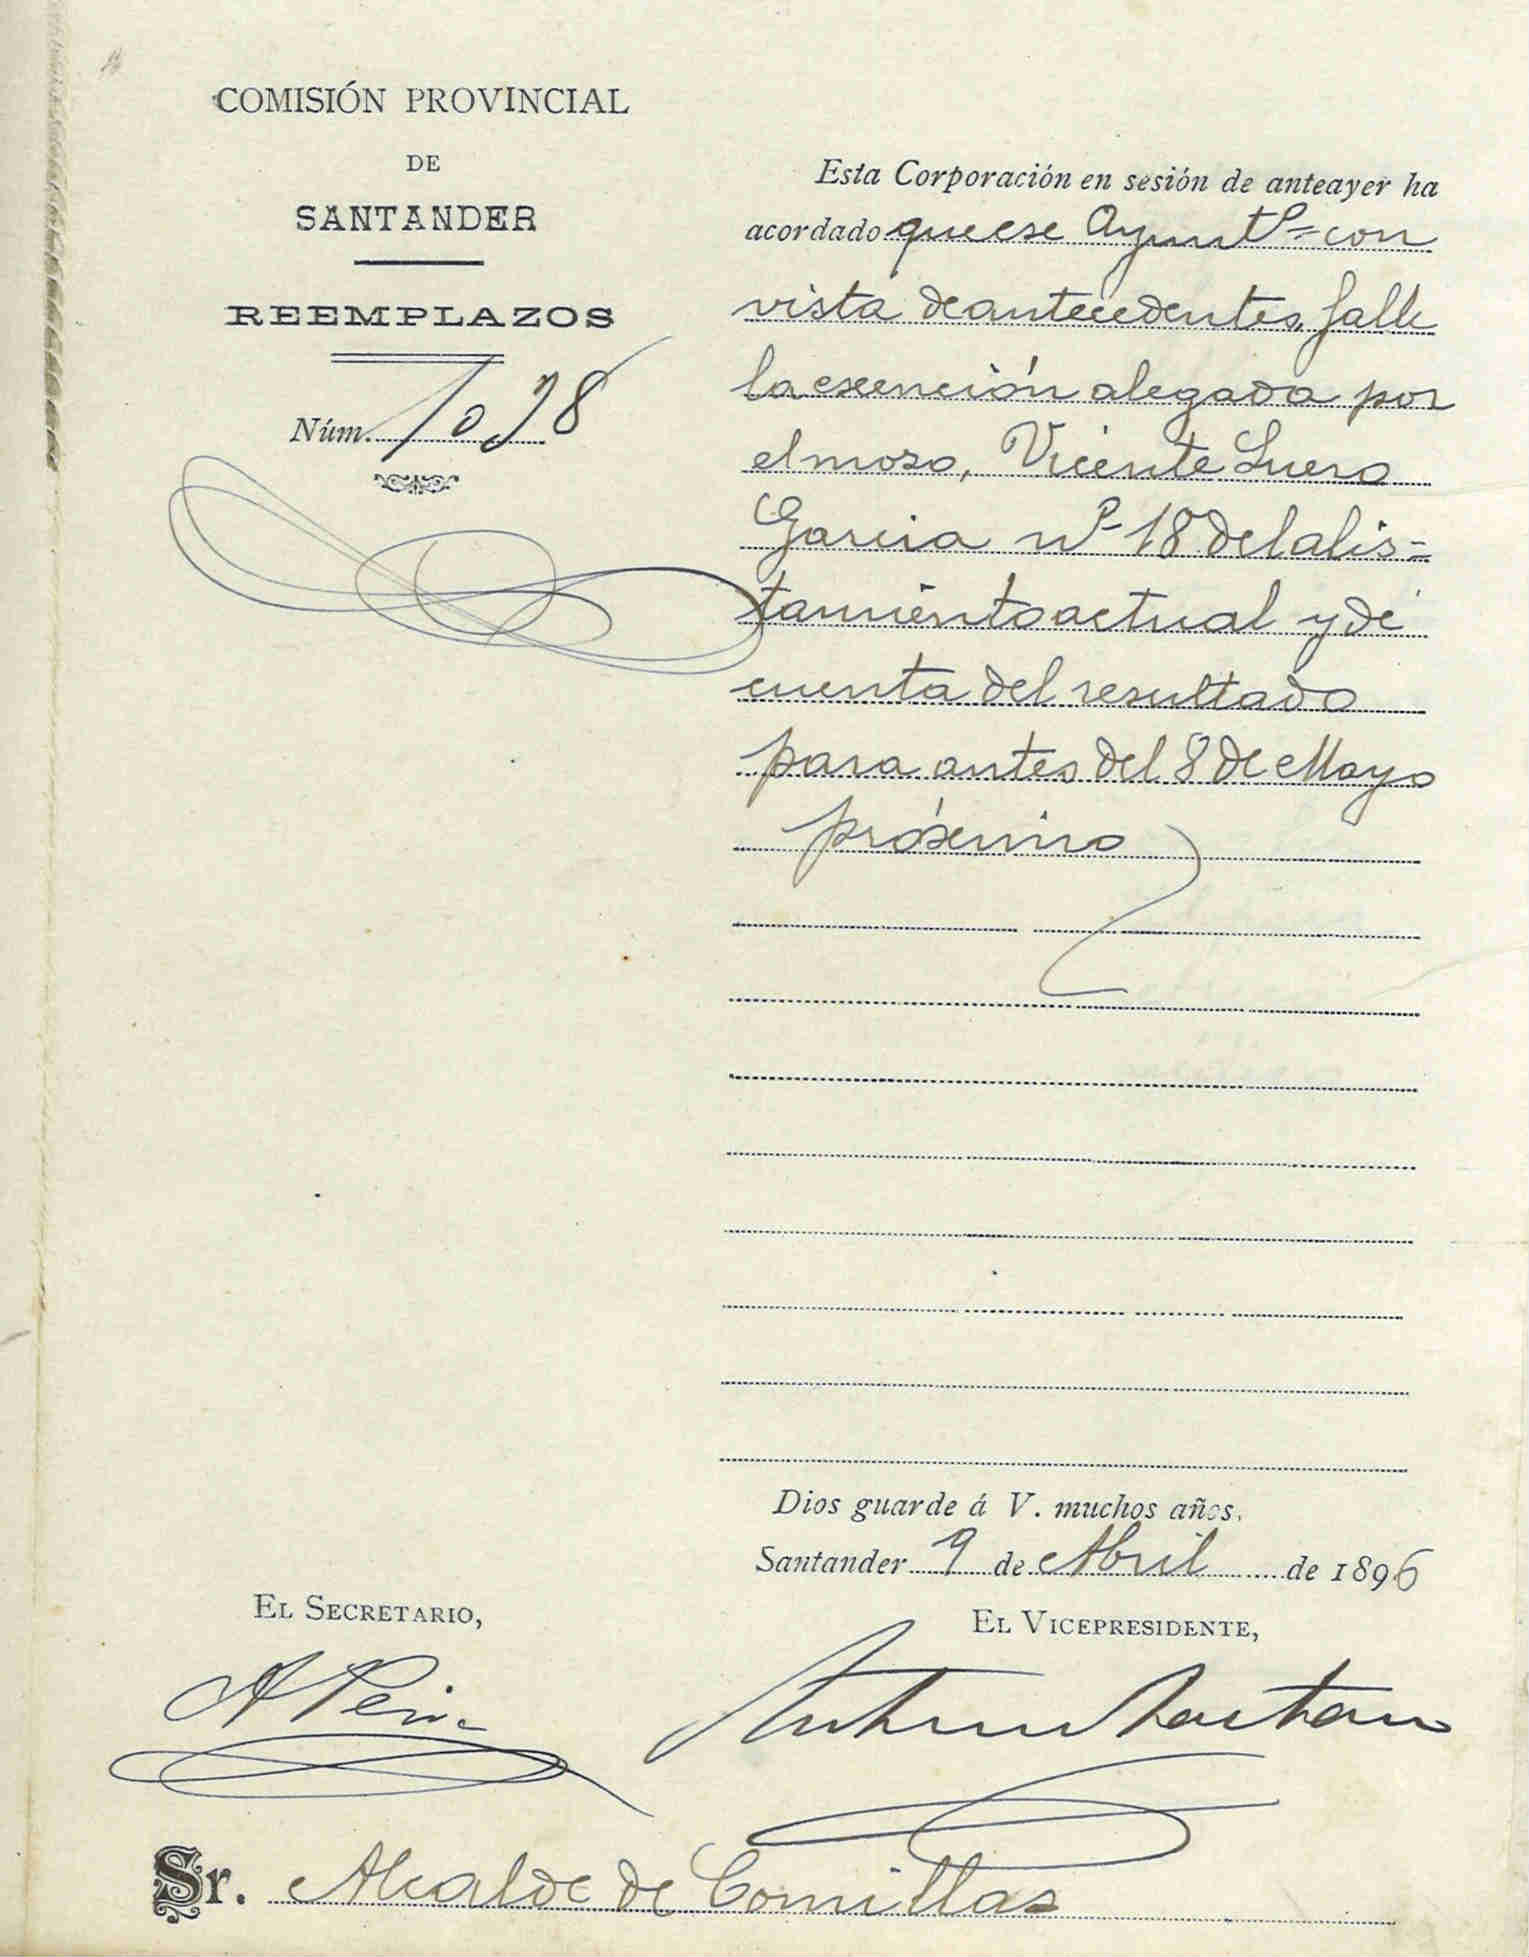 COMISIÓN PROVINCIAL
DE
SANTANDER
REEMPLAZOS
Núm. 1098
Esta Corporación en sesión de anteayer ha
acordado que ese Ayuntº con
vista de antecedentes, falle
la exención alegada por
el mozo, Vicente Luero
Garcia nº 18 del alis-
tamiento actual y dé
cuenta del resultado
para antes del 8 de Mayo
próximo
Dios guarde á V. muchos años.
Santander 9 de Abril de 1896
EL SECRETARIO,
EL VICEPRESIDENTE,
A
Sr. Alcalde de Comillas